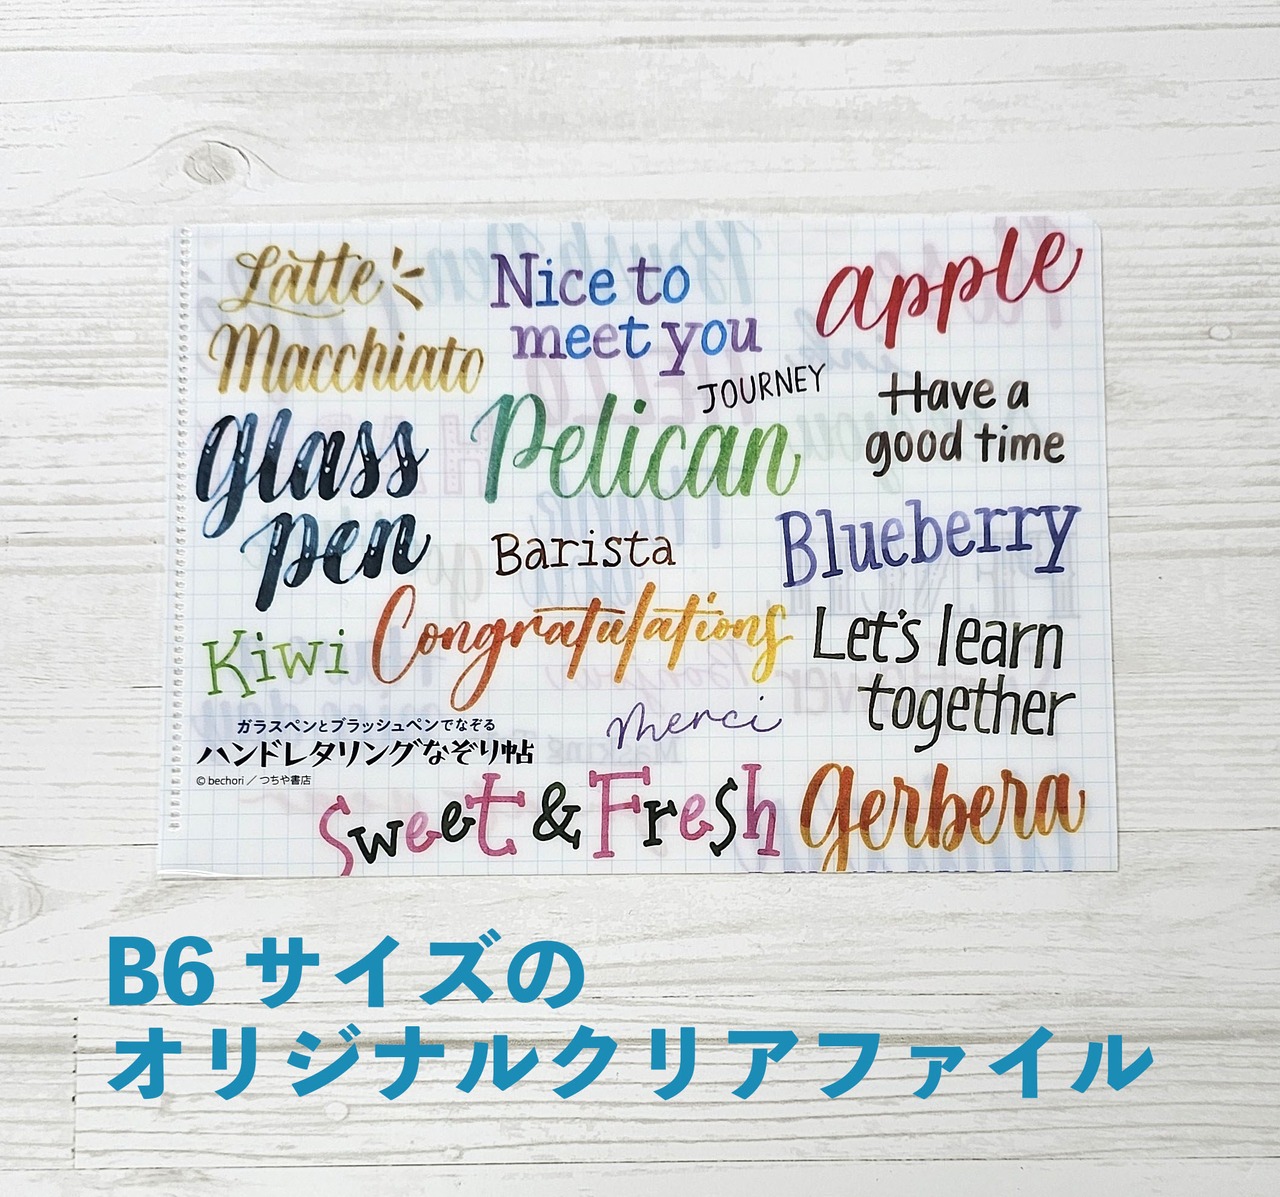 Latte
Macchiato
Nice to
meet you
apple
JOURNEY
Have a
good time
glass
pen
Pelican
Barista
Blueberry
Kiwi
Congratulations
Let's learn
together
merci
ガラスペンとブラッシュペンでなぞる
ハンドレタリングなぞり帖
© bechori／つちや書店
Sweet & Fresh
Gerbera
B6 サイズの
オリジナルクリアファイル